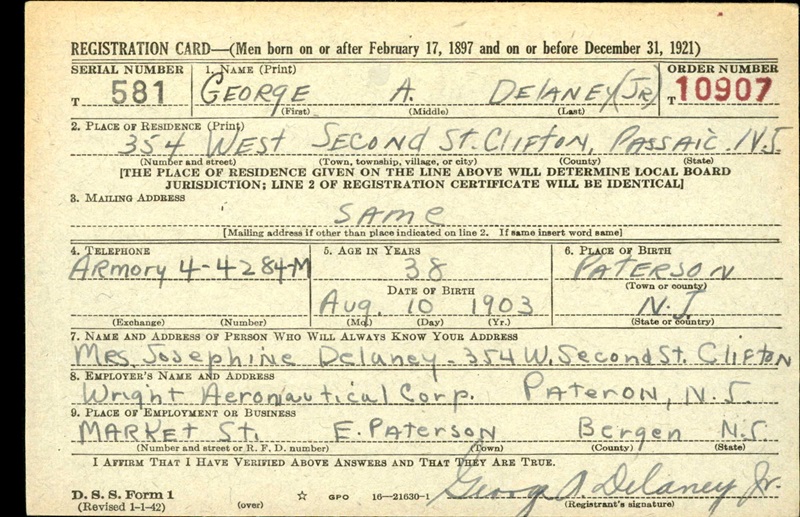 REGISTRATION CARD—(Men born on or after February 17, 1897 and on or before December 31, 1921)
SERIAL NUMBER 1. NAME (Print) ORDER NUMBER
T 581 GEORGE A. DELANEY (JR) T 10907
(First) (Middle) (Last)
2. PLACE OF RESIDENCE (Print)
354 WEST SECOND ST. CLIFTON, PASSAIC. N.J.
(Number and street) (Town, township, village, or city) (County) (State)
[THE PLACE OF RESIDENCE GIVEN ON THE LINE ABOVE WILL DETERMINE LOCAL BOARD
JURISDICTION; LINE 2 OF REGISTRATION CERTIFICATE WILL BE IDENTICAL]
3. MAILING ADDRESS
SAME
[Mailing address if other than place indicated on line 2. If same insert word same]
4. TELEPHONE 5. AGE IN YEARS 6. PLACE OF BIRTH
ARmory 4-4284-M 38 PATERSON
DATE OF BIRTH (Town or county)
Aug. 10 1903 N.J.
(Exchange) (Number) (Mo.) (Day) (Yr.) (State or country)
7. NAME AND ADDRESS OF PERSON WHO WILL ALWAYS KNOW YOUR ADDRESS
MRS. Josephine Delaney - 354 W. Second St. CLIFTON
8. EMPLOYER'S NAME AND ADDRESS
Wright Aeronautical Corp. PATERON, N.J.
9. PLACE OF EMPLOYMENT OR BUSINESS
MARKET St. E. PATERSON Bergen N.J.
(Number and street or R. F. D. number) (Town) (County) (State)
I AFFIRM THAT I HAVE VERIFIED ABOVE ANSWERS AND THAT THEY ARE TRUE.
D. S. S. Form 1 George A. Delaney Jr.
(Revised 1-1-42) (over) ☆ GPO 16—21630-1 (Registrant's signature)